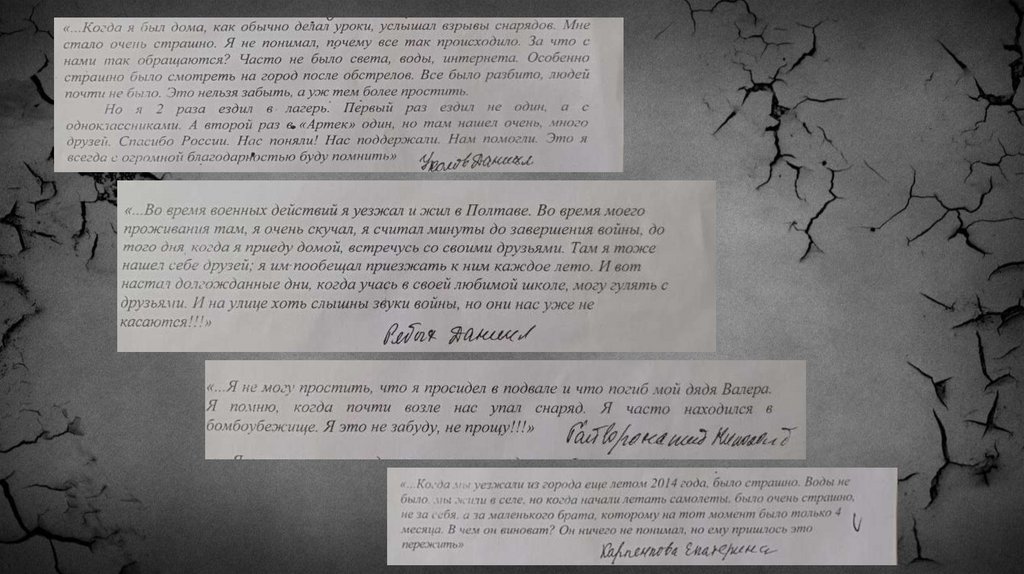 «...Когда я был дома, как обычно делал уроки, услышал взрывы снарядов. Мне
стало очень страшно. Я не понимал, почему все так происходило. За что с
нами так обращаются? Часто не было света, воды, интернета. Особенно
страшно было смотреть на город после обстрелов. Все было разбито, людей
почти не было. Это нельзя забыть, а уж тем более простить.
Но я 2 раза ездил в лагерь. Первый раз ездил не один, а с
одноклассниками. А второй раз в «Артек» один, но там нашел очень, много
друзей. Спасибо России. Нас поняли! Нас поддержали. Нам помогли. Это я
всегда с огромной благодарностью буду помнить»
Даниил
«...Во время военных действий я уезжал и жил в Полтаве. Во время моего
проживания там, я очень скучал, я считал минуты до завершения войны, до
того дня, когда я приеду домой, встречусь со своими друзьями. Там я тоже
нашел себе друзей; я им пообещал приезжать к ним каждое лето. И вот
настал долгожданные дни, когда учась в своей любимой школе, могу гулять с
друзьями. И на улице хоть слышны звуки войны, но они нас уже не
касаются!!!»
Даниил
«...Я не могу простить, что я просидел в подвале и что погиб мой дядя Валера.
Я помню, когда почти возле нас упал снаряд. Я часто находился в
бомбоубежище. Я это не забуду, не прощу!!!»
«...Когда мы уезжали из города еще летом 2014 года, было страшно. Воды не
было, мы жили в селе, но когда начали летать самолеты, было очень страшно,
не за себя, а за маленького брата, которому на тот момент было только 4
месяца. В чем он виноват? Он ничего не понимал, но ему пришлось это
пережить»
Карпенкова Екатерина